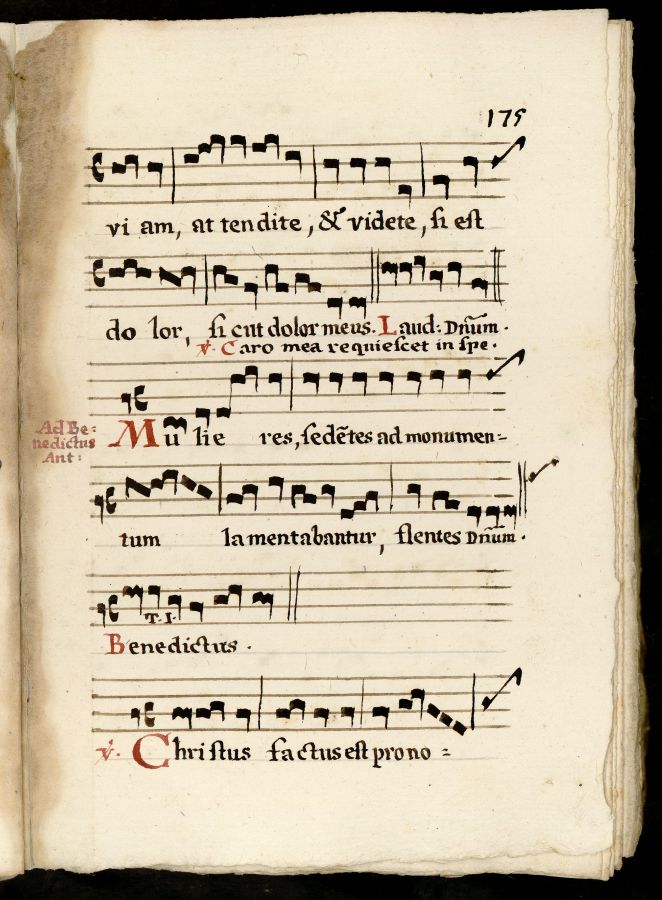 175
vi am, at ten dite, & videte, si est
do lor, si cut dolor meus. Laud: Dñum.
℣. Caro mea requiescet in spe.
Ad Be:
nedictus
Ant:
Mu lie res, sedẽtes ad monumen=
tum lamentabantur, flentes Dñum.
T. I.
Benedictus.
℣. Christus factus est pro no=